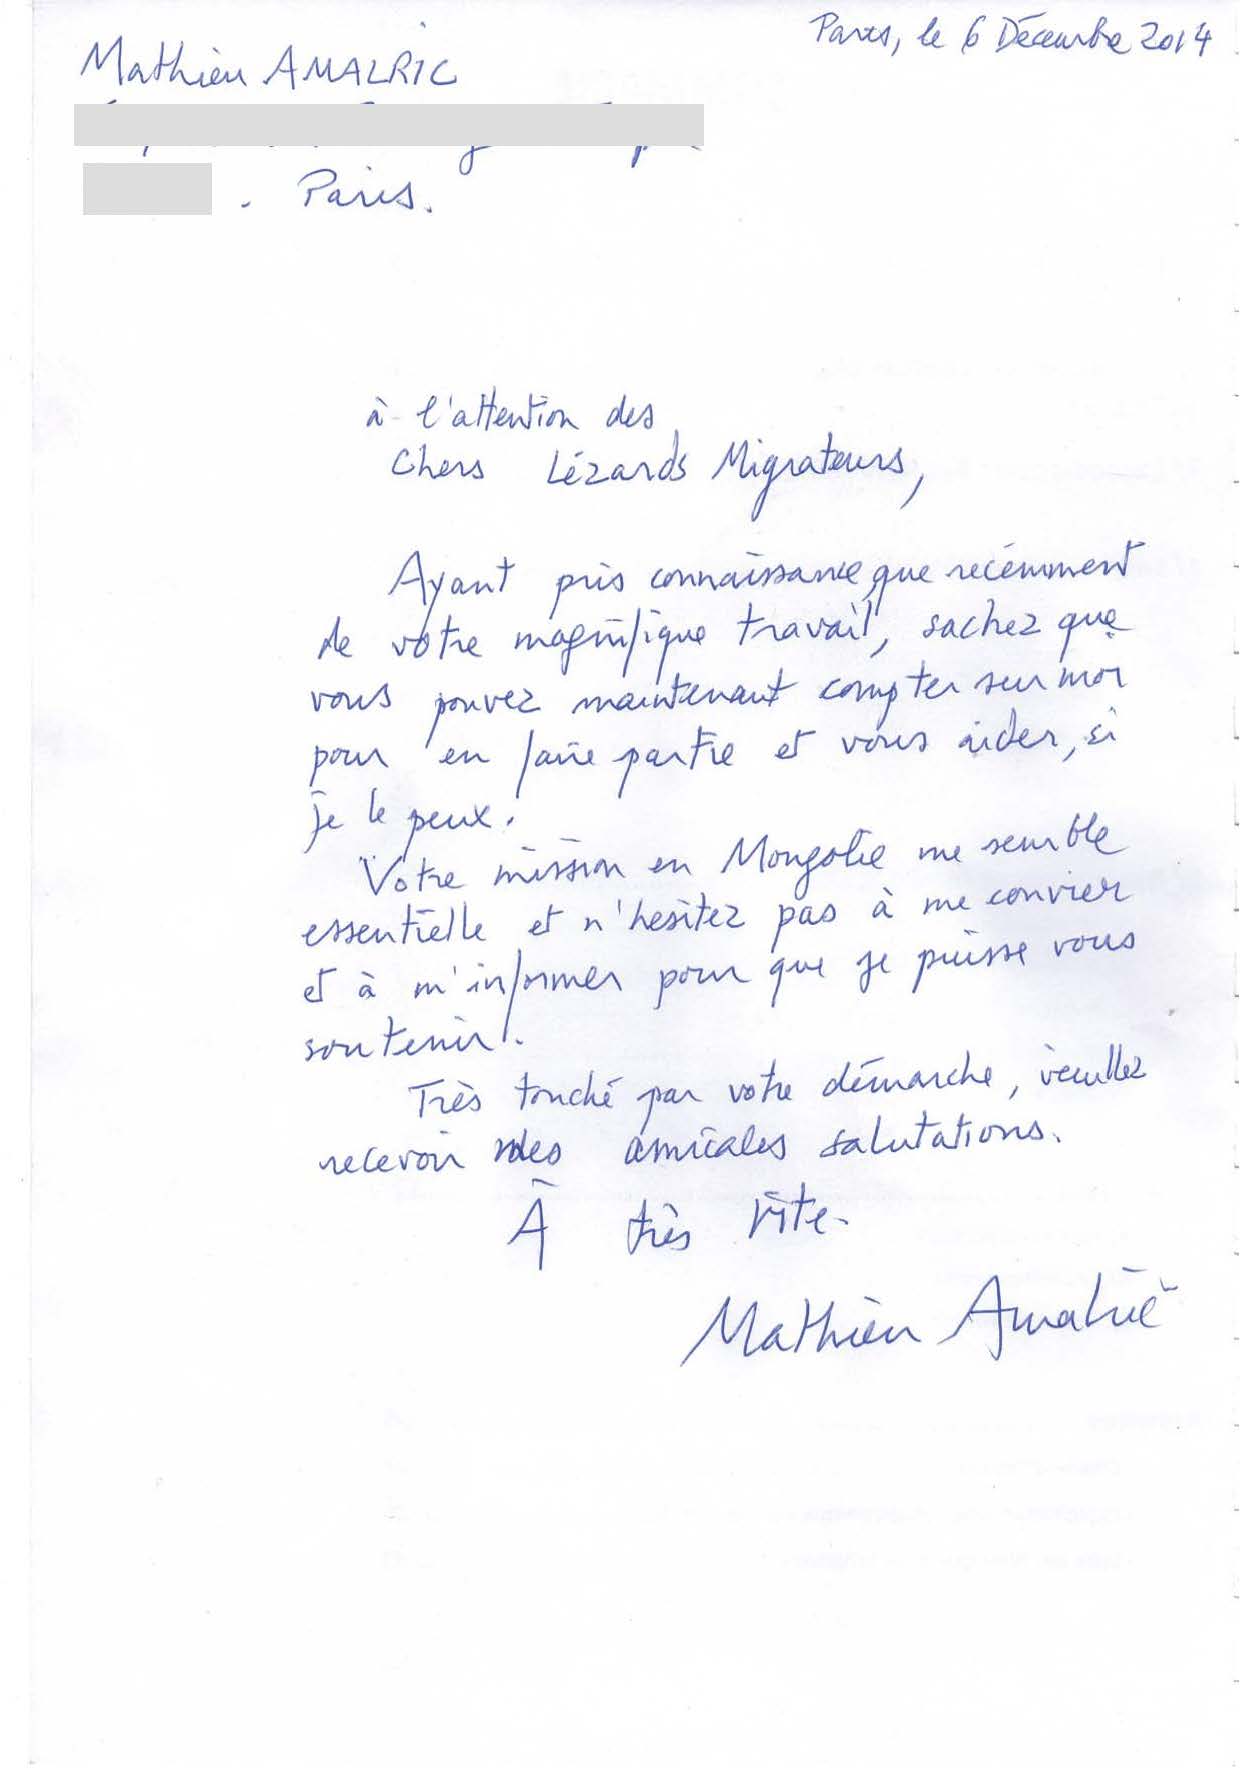 Paris, le 6 Décembre 2014
Mathieu AMALRIC
. Paris.
à l'attention des
Chers Lézards Migrateurs,
Ayant pris connaissance que récemment
de votre magnifique travail, sachez que
vous pouvez maintenant compter sur moi
pour en faire partie et vous aider, si
je le peux.
Votre mission en Mongolie me semble
essentielle et n'hésitez pas à me convier
et à m'informer pour que je puisse vous
soutenir.
Très touché par votre démarche, veuillez
recevoir mes amicales salutations.
À très vite.
Mathieu Amalric